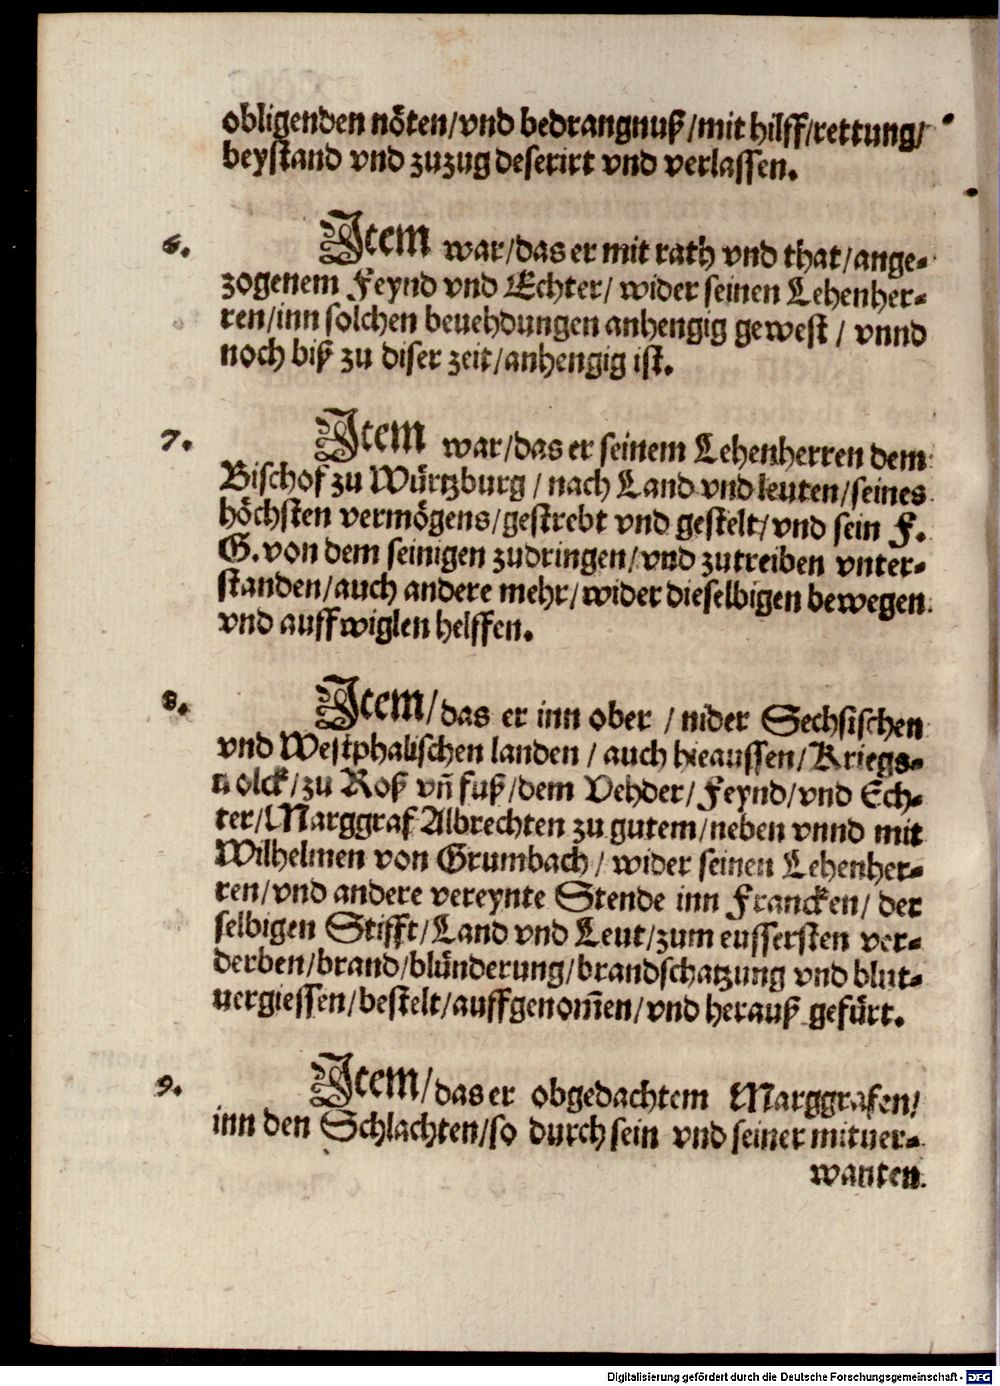 obligenden nöten/vnd bedrangnuß/mit hilff/rettung/
beystand vnd zuzug deserirt vnd verlassen.
6. Item war/das er mit rath vnd that/ange-
zogenem Feynd vnd Echter/ wider seinen Lehenher-
ren/inn solchen beuehdungen anhengig gewest / vnnd
noch biß zu diser zeit/anhengig ist.
7. Item war/das er seinem Lehenherren dem
Bischof zu Würtzburg / nach Land vnd leuten/seines
höchsten vermögens/gestrebt vnd gestelt/vnd sein F.
G. von dem seinigen zudringen/vnd zutreiben vnter-
standen/auch andere mehr/wider dieselbigen bewegen
vnd auffwiglen helffen.
8. Item/das er inn ober / nider Sechsischen
vnd Westphalischen landen / auch hieaussen/Kriegs-
uolck/zu Roß vñ fuß/dem Vehder/Feynd/vnd Ech-
ter/Marggraf Albrechten zu gutem/neben vnnd mit
Wilhelmen von Grumbach/ wider seinen Lehenher-
ren/vnd andere vereynte Stende inn Francken/ der
selbigen Stifft/Land vnd Leut/zum eussersten ver-
derben/brand/blünderung/brandschatzung vnd blut-
uergiessen/bestelt/auffgenom̃en/vnd herauß gefürt.
9. Item/das er obgedachtem Marggrafen/
inn den Schlachten/so durch sein vnd seiner mituer-
wanten
Digitalisierung gefördert durch die Deutsche Forschungsgemeinschaft - DFG